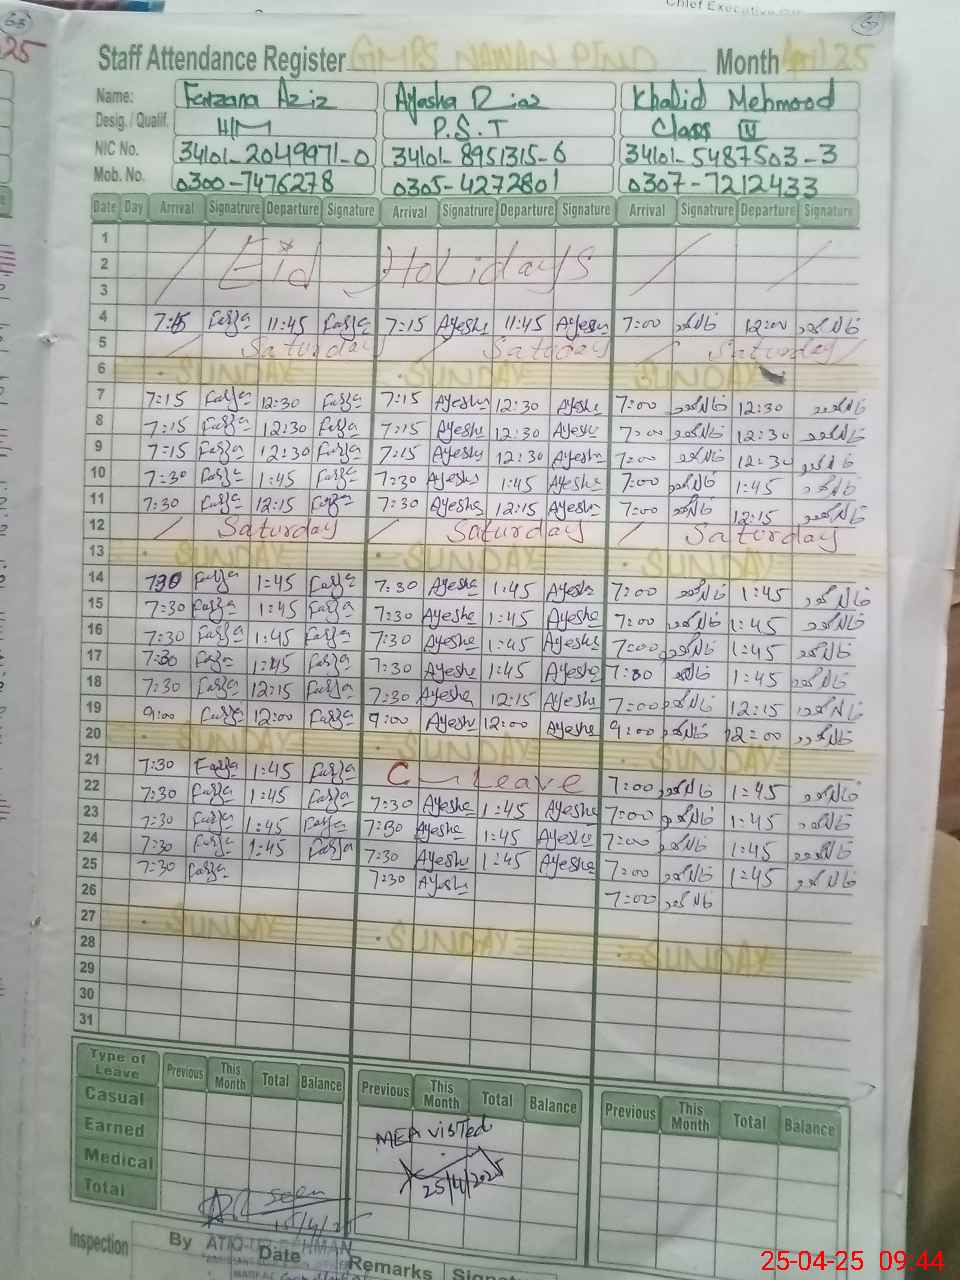 Chief Executive
63
25
Staff Attendance Register GMPS NAWAN PIND Month April 25
Name: Farzana Aziz Ayasha Riaz Khalid Mehmood
Desig. / Qualif. H/M P.S.T Class IV
NIC No. 34101-2049971-0 34101-8951315-6 34101-5487503-3
Mob. No. 0300-7476278 0305-4272801 0307-7212433
Date Day Arrival Signatrure Departure Signature Arrival Signatrure Departure Signature Arrival Signatrure Departure Signature
1
2 Eid Holidays
3
4 7:15 Farza 11:45 Farza 7:15 Ayesha 11:45 Ayesha 7:00 12:00
5 Saturday Saturday Saturday
6 SUNDAY SUNDAY SUNDAY
7 7:15 Farza 12:30 Farza 7:15 Ayesha 12:30 Ayesha 7:00 12:30
8 7:15 Farza 12:30 Farza 7:15 Ayesha 12:30 Ayesha 7:00 12:30
9 7:15 Farza 12:30 Farza 7:15 Ayesha 12:30 Ayesha 7:00 12:30
10 7:30 Farza 1:45 Farza 7:30 Ayesha 1:45 Ayesha 7:00 1:45
11 7:30 Farza 12:15 Farza 7:30 Ayesha 12:15 Ayesha 7:00 12:15
12 Saturday Saturday Saturday
13 SUNDAY SUNDAY SUNDAY
14 7:30 Farza 1:45 Farza 7:30 Ayesha 1:45 Ayesha 7:00 1:45
15 7:30 Farza 1:45 Farza 7:30 Ayesha 1:45 Ayesha 7:00 1:45
16 7:30 Farza 1:45 Farza 7:30 Ayesha 1:45 Ayesha 7:00 1:45
17 7:30 Farza 1:45 Farza 7:30 Ayesha 1:45 Ayesha 7:00 1:45
18 7:30 Farza 12:15 Farza 7:30 Ayesha 12:15 Ayesha 7:00 12:15
19 9:00 Farza 12:00 Farza 9:00 Ayesha 12:00 Ayesha 9:00 12:00
20 SUNDAY SUNDAY SUNDAY
21 7:30 Farza 1:45 Farza C-Leave 7:00 1:45
22 7:30 Farza 1:45 Farza 7:30 Ayesha 1:45 Ayesha 7:00 1:45
23 7:30 Farza 1:45 Farza 7:30 Ayesha 1:45 Ayesha 7:00 1:45
24 7:30 Farza 1:45 Farza 7:30 Ayesha 1:45 Ayesha 7:00 1:45
25 7:30 Farza 7:30 Ayesha 7:00
26
27 SUNDAY SUNDAY SUNDAY
28
29
30
31
Type of Leave Previous This Month Total Balance Previous This Month Total Balance Previous This Month Total Balance
Casual
Earned MEA visted
Medical
Total 25/4/2025
Seen
15/4/25
Inspection By Date Remarks
25-04-25 09:44